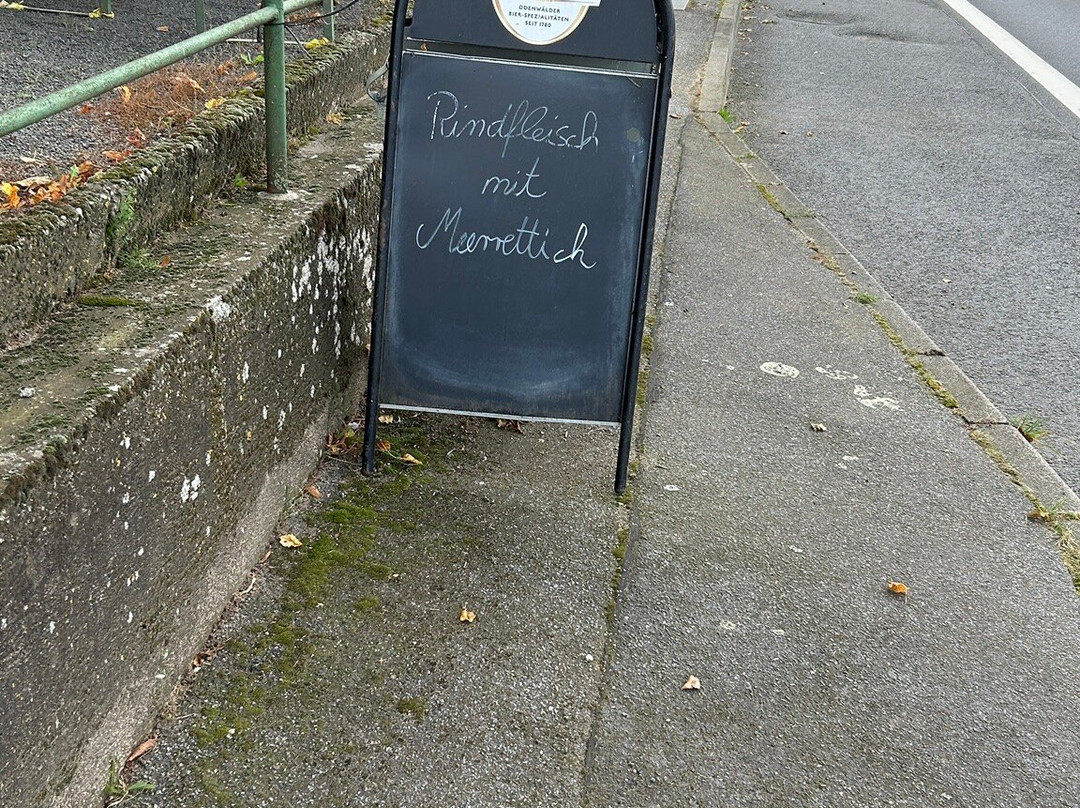 ODENWÄLDER
BIER-SPEZIALITÄTEN
SEIT 1780
Rindfleisch
mit
Meerrettich